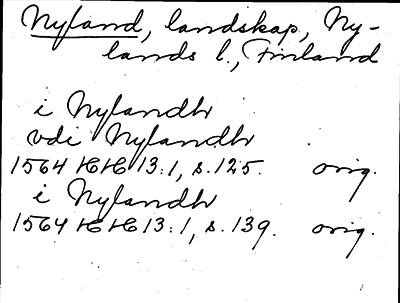 Nyland, landskap, Ny-
lands l., Finland
i Nylandh
vdi Nylandh
1564 HH 13:1, s. 125. orig.
i Nylandh
1564 HH 13:1, s. 139. orig.